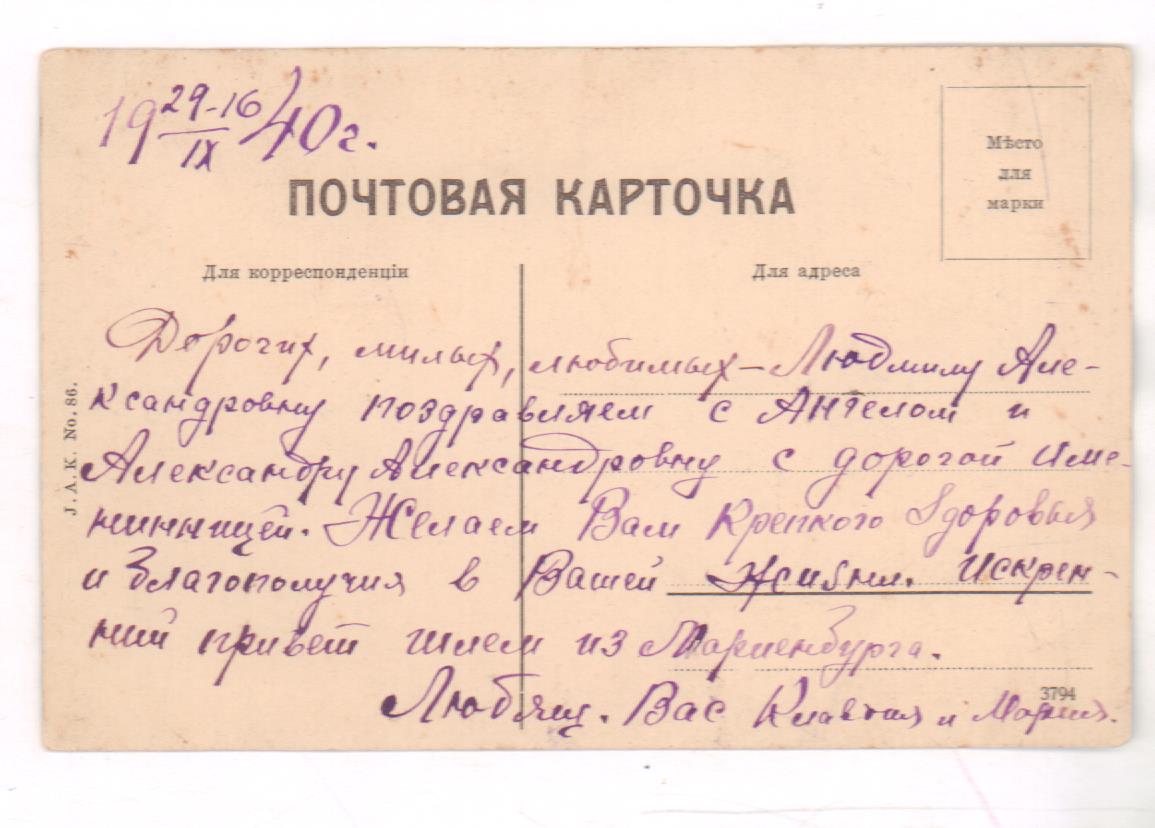 19 29-16/IX 40 г.
ПОЧТОВАЯ КАРТОЧКА
Мѣсто
для
марки
Для корреспонденціи
Для адреса
Дорогих, милых, любимых – Людмилу Але-
ксандровну поздравляем с Ангелом и
Александру Александровну с дорогой име-
нинницей. Желаем Вам Крепкого Здоровья
и благополучия в Вашей Жизни. Искрен-
ний привет шлем из Мариенбурга.
Любящ. Вас Клавдия и Мария.
3794
J. A. K. No. 86.